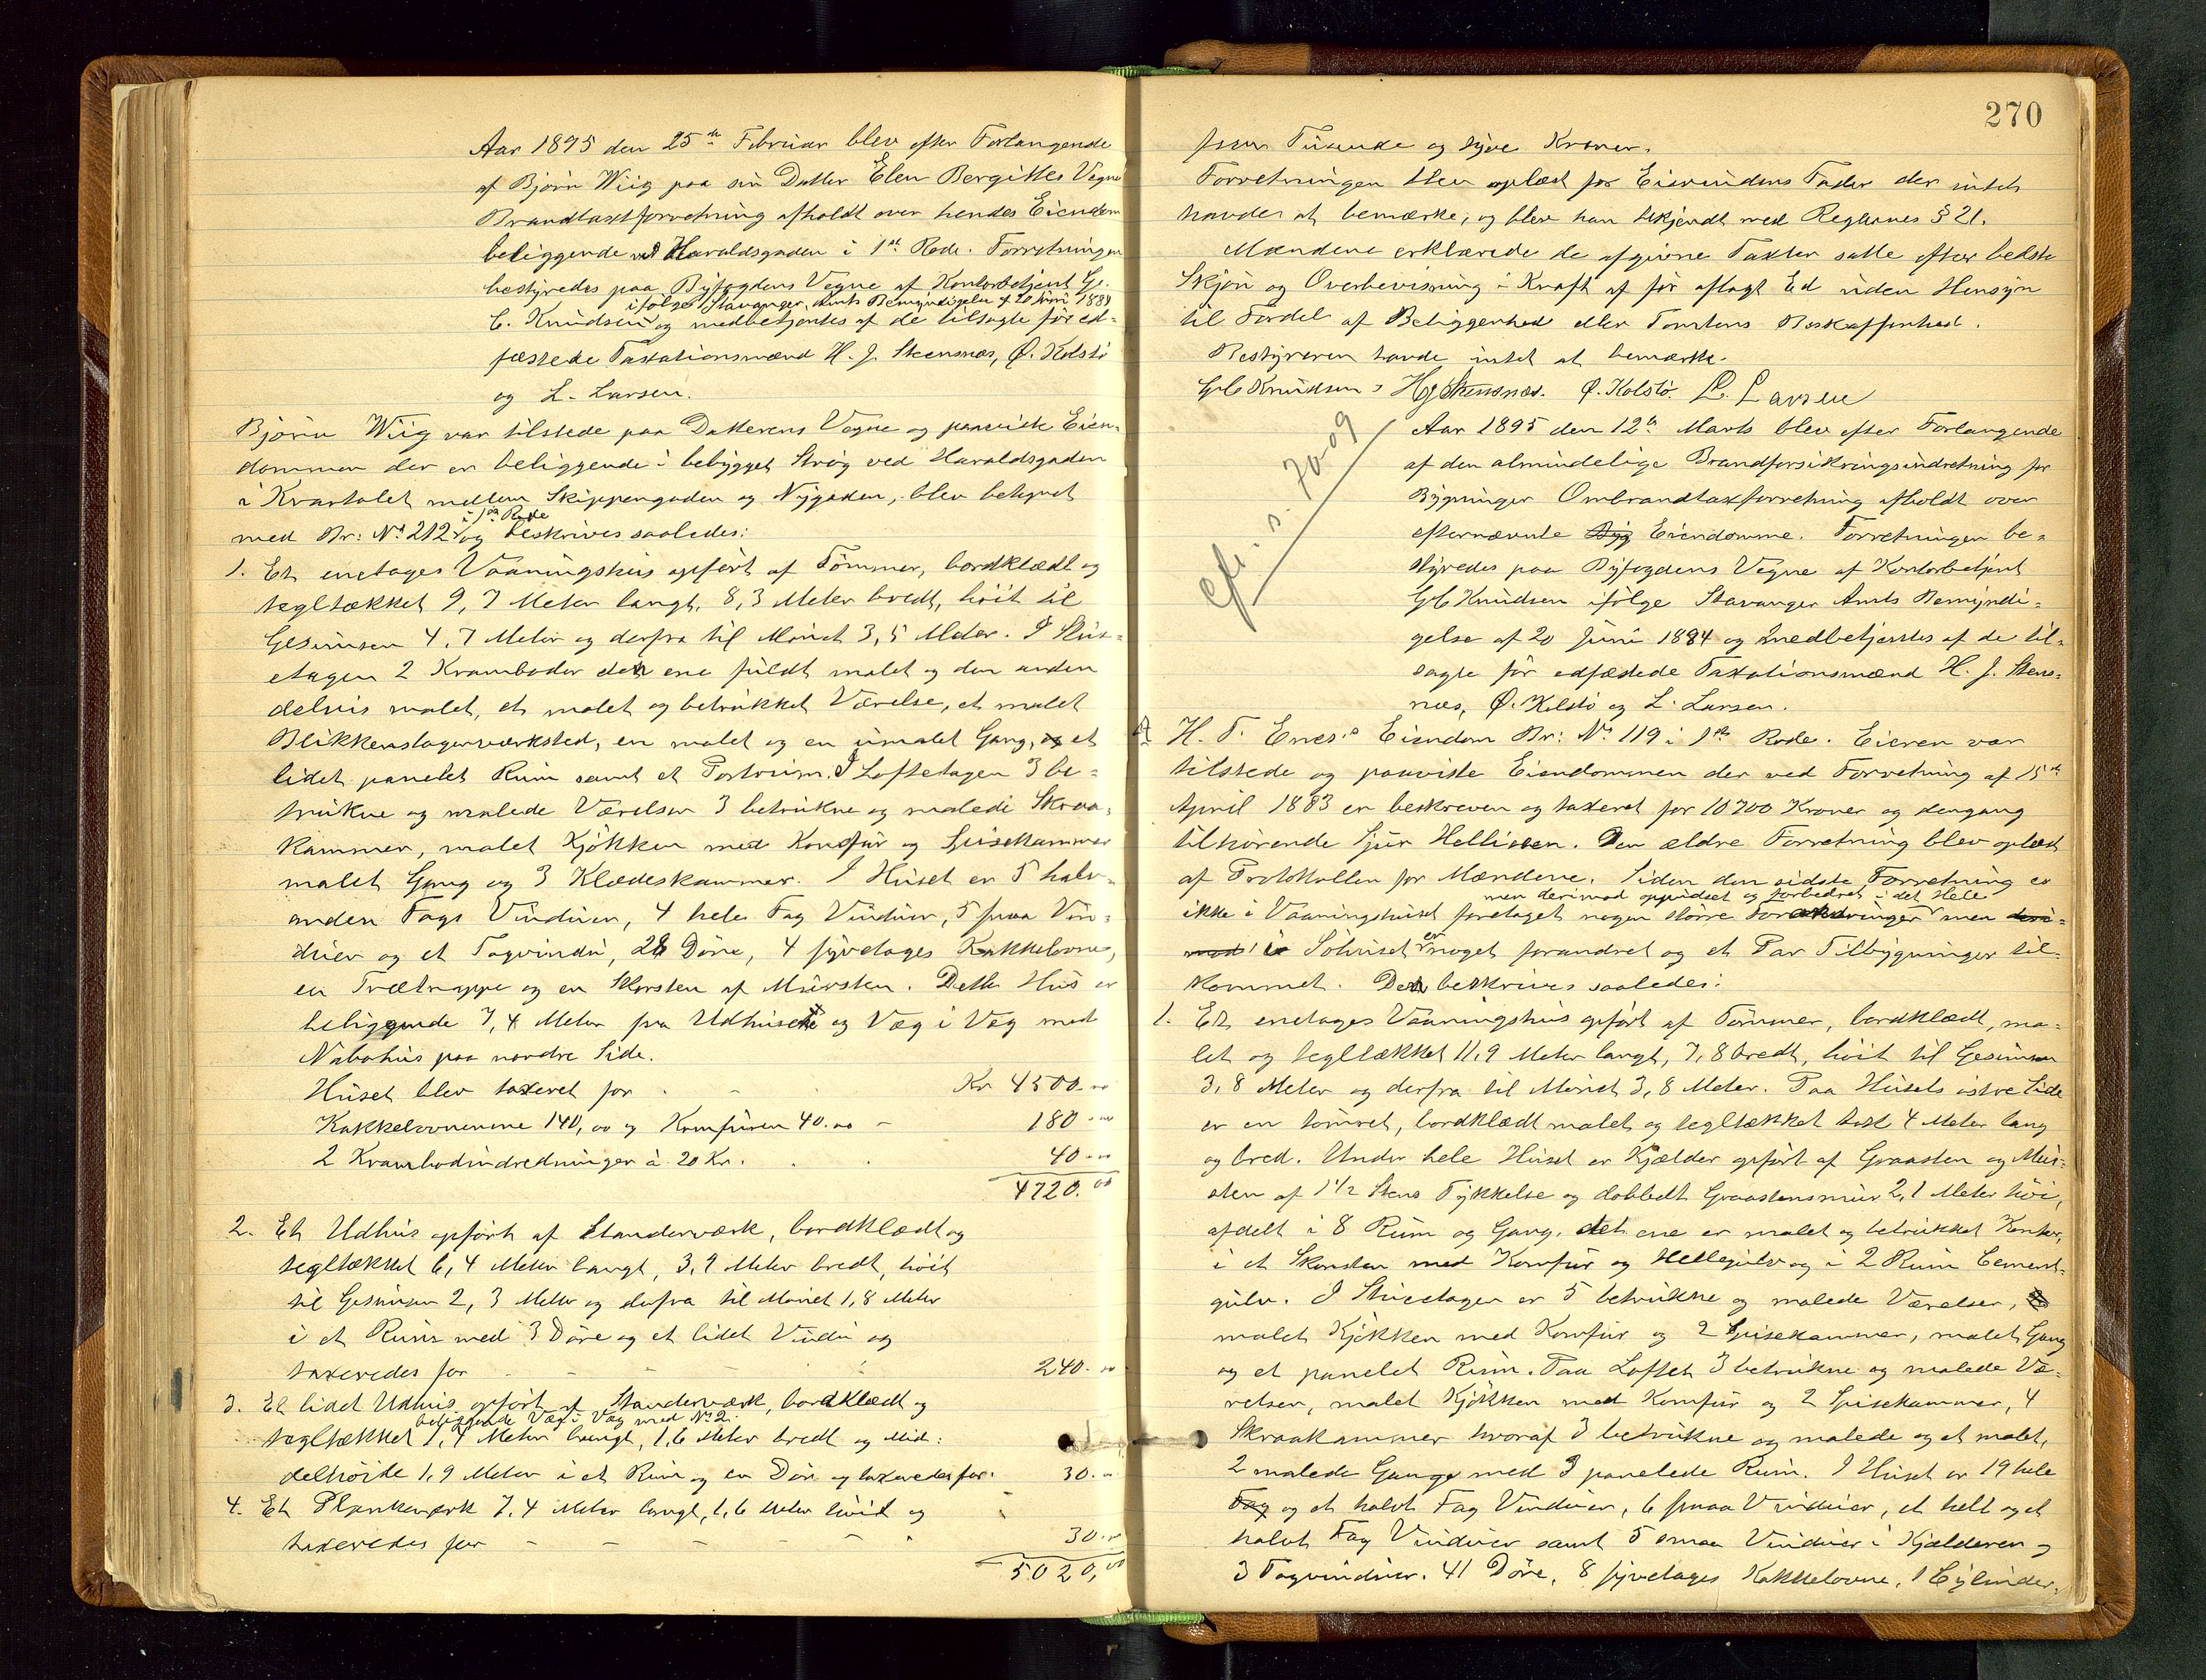 Aar 1895 den 25de Februar blev efter Forlangende
af Bjørn Wiig paa sin Datter Elen Bergittes Vegne
Brandtaxtforretning afholdt over hendes Eiendom
beliggende ved Haraldsgaden i 1ste Rode. Forretningen
bestyredes paa Byfogdens Vegne af Kontorbetjent G.
ifølge Stavanger Amts Bemyndigelse af 20 Juni 1884
C. Knudsen og medbetjentes af de tilsagte før ed-
fæstede Taxationsmænd H. J. Steensnæs, Ø. Kolstø
og L. Larsen.
Bjørn Wiig var tilstede paa Datterens Vegne og paaviste Eien-
dommen der er beliggende i bebygget Strøg ved Haraldsgaden
i Kvartalet mellem Skippergaden og Nygaden, blev betegnet
i 1ste Rode
med Br: No 212 og beskrives saaledes:
1. Et enetages Vaaningshus opført af Tømmer, bordklædt og
tegltækket 9,7 Meter langt, 8,3 Meter bredt, høit til
Gesimsen 4,7 Meter og derfra til Mønet 3,5 Meter. I Stue-
etagen 2 Kramboder den ene fuldt malet og den anden
delvis malet, et malet og betrukket Værelse, et malet
Blikkenslagerværksted, en malet og en umalet Gang, og et
lidet panelet Rum samt et Portrum. I Loftetagen 3 be-
trukne og malede Værelser 3 betrukne og malede Skraa-
kammer, malet Kjøkken med Komfur og Spisekammer
malet Gang og 3 Klædeskammer. I Huset er 5 halv-
anden Fags Vinduer, 4 hele Fag Vinduer, 5 smaa Vin-
duer og et Tagvindu, 28 Døre, 4 fyretages Kakkelovne,
en Trætrappe og en Skorsten af Mursten. Dette Hus er
beliggende 7,4 Meter fra Udhuset og Væg i Væg med
Nabohus paa nordre Side.
Huset blev taxeret for - - Kr 4500.00
Kakkelovnenene 140,00 og Komfuren 40.00 - 180.00
2 Krambodindredninger à 20 Kr. . . 40.00
4720.00
2. Et Udhus opført af Standerværk, bordklædt og
tegltækket 6,4 Meter langt, 3,9 Meter bredt, høit
til Gesimsen 2,3 Meter og derfra til Mønet 1,8 Meter
i et Rum med 3 Døre og et lidet Vindu og
taxeredes for - - - - 240.00
3. Et lidet Udhus opført af Standerværk, bordklædt og
beliggende Væg i Væg med No 2.
tegltækket 1,4 Meter langt, 1,6 Meter bredt og Mid-
delhøide 1,9 Meter i et Rum og en Dør og taxeredes for. 30.00
4. Et Plankeværk 7,4 Meter langt, 1,6 Meter høit og
taxeredes for - - - - - 30.00
5020,00
270
fem Tusende og tyve Kroner.
Forretningen blev oplæst for Eierindens Fader der intet
havde at bemærke, og blev han bekjendt med Reglernes § 21.
Mændene erklærede de afgivne Taxter satte efter bedste
Skjøn og Overbevisning i Kraft af før aflagt Ed uden Hensyn
til Fordel af Beliggenhed eller Tomtens Beskaffenhed.
Bestyreren havde intet at bemærke.
G C Knudsen H J Stensnæs. Ø. Kolstø. L. Larsen
Aar 1895 den 12te Marts blev efter Forlangende
af den almindelige Brandforsikringsindretning for
Bygninger Ombrandtaxtforretning afholdt over
efternævnte Byg Eiendomme. Forretningen be-
styredes paa Byfogdens Vegne af Kontorbetjent
G C Knudsen ifølge Stavanger Amts Bemyndi-
gelse af 20 Juni 1884 og medbetjentes af de til-
sagte før edfæstede Taxationsmænd H. J. Stens-
næs, Ø. Kolstø og L. Larsen.
A H. T. Enes's Eiendom Br: No 119 i 1ste Rode. Eieren var
tilstede og paaviste Eiendommen der ved Forretning af 15de
April 1883 er beskreven og taxeret for 10700 Kroner og dengang
tilhørende Sjur Hellisen. Den ældre Forretning blev oplæst
af Protokollen for Mændene. Siden den sidste Forretning er
men derimod oppudset og forbedret i det Hele
ikke i Vaaningshuset foretaget nogen større Forandringer men deri-
mod i Søhuset er noget forandret og et Par Tilbygninger til-
kommet. Den beskrives saaledes:
1. Et enetages Vaaningshus opført af Tømmer, bordklædt, ma-
let og tegltækket 11,9 Meter langt, 7,8 bredt, høit til Gesimsen
3,8 Meter og derfra til Mønet 3,8 Meter. Paa Husets østre Side
er en tømret, bordklædt malet og tegltækket 4 Meter lang
og bred. Under hele Huset er Kjælder opført af Graasten og Mur-
sten af 1 1/2 Stens Tykkelse og dobbelt Graastensmur 2,1 Meter høi,
afdelt i 8 Rum og Gang, det ene er malet og betrukket Kontor,
i et Skorsten med Komfur og Hellegulv og i 2 Rum Cement-
gulv. I Stueetagen er 5 betrukne og malede Værelser,
malet Kjøkken med Komfur og 2 Spisekammer, malet Gang
og et panelet Rum. Paa Loftet 3 betrukne og malede Væ-
relser, malet Kjøkken med Komfur og 2 Spisekammer, 4
Skraakammer hvoraf 3 betrukne og malede og et malet,
2 malede Gange med 3 panelede Rum. I Huset er 19 hele
Fag og et halvt Fag Vinduer, 6 smaa Vinduer, et helt og et
halvt Fag Vinduer samt 5 smaa Vinduer i Kjælderen og
3 Tagvinduer. 41 Døre, 8 fyretages Kakkelovne, 1 Cylinder-